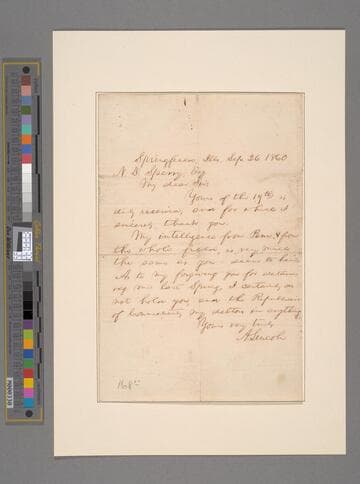 Springfield, Ills. Sep. 26 1860
N. D. Sperry, Esq
My dear Sir
Yours of the 19th is
duly received, and for which I
sincerely thank you.
My intelligence from Penn. & from
the whole field, is very much
the same as you seem to have
As to my forgiving you for
me last Spring, I certainly do
not hold you, and the Republicans
of Connecticut, my debtors in anything
Yours very truly
A. Lincoln